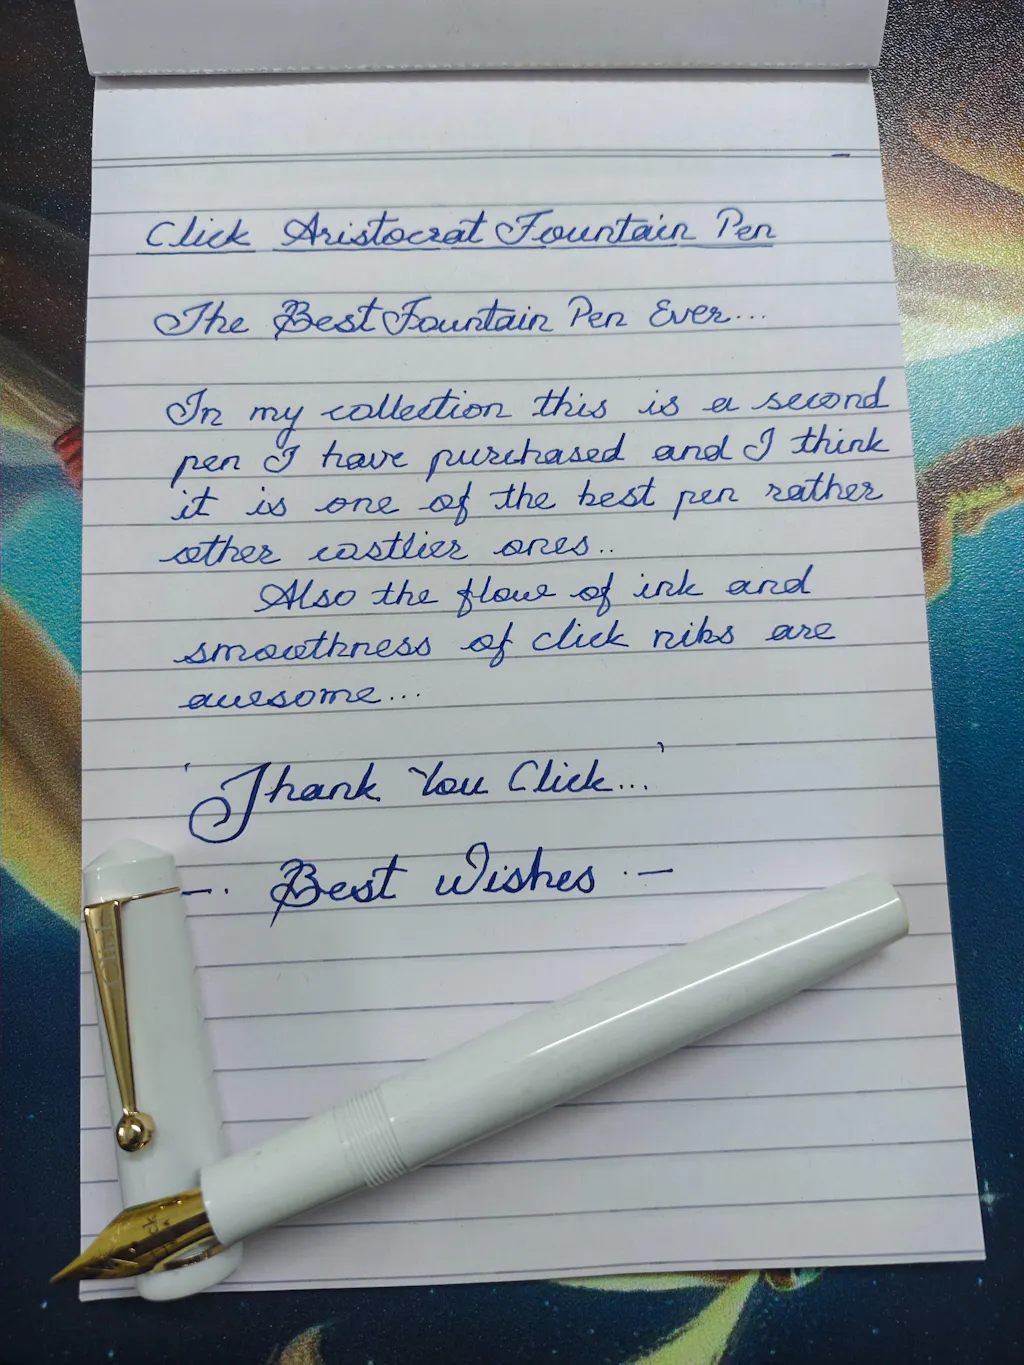 Click Aristocrat Fountain Pen
The Best Fountain Pen Ever...
In my collection this is a second
pen I have purchased and I think
it is one of the best pen rather
other costlier ones..
Also the flow of ink and
smoothness of click nibs are
awesome...
'Thank You Click...'
-. Best Wishes .-